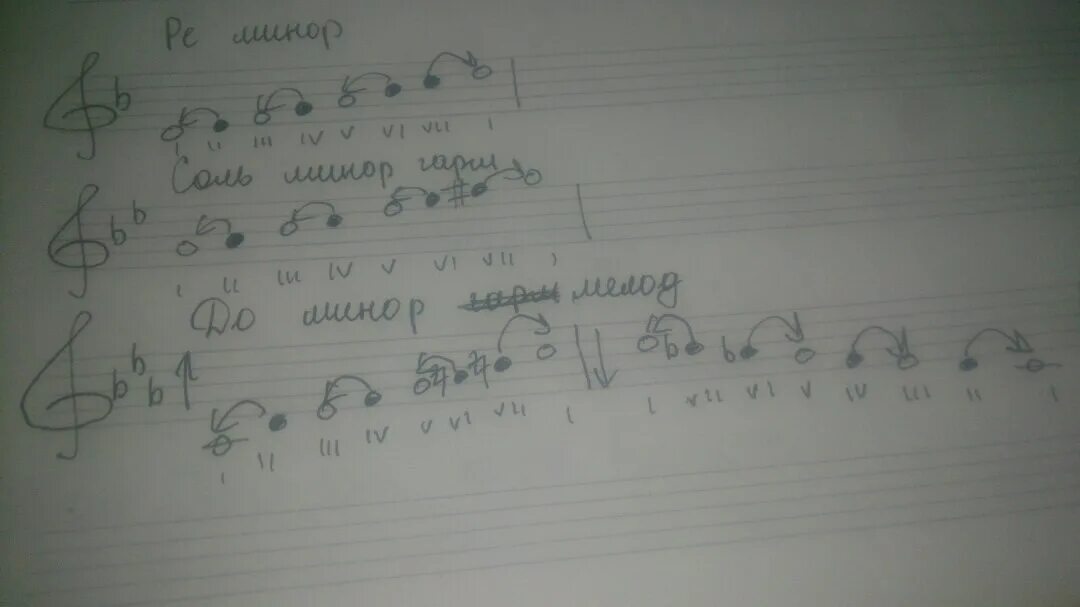 Ре минор
I II III IV V VI VII I
Соль минор гарм
I II III IV V VI VII I
До минор гарм мелод
I II III IV V VI VII I I VII VI V IV III II I